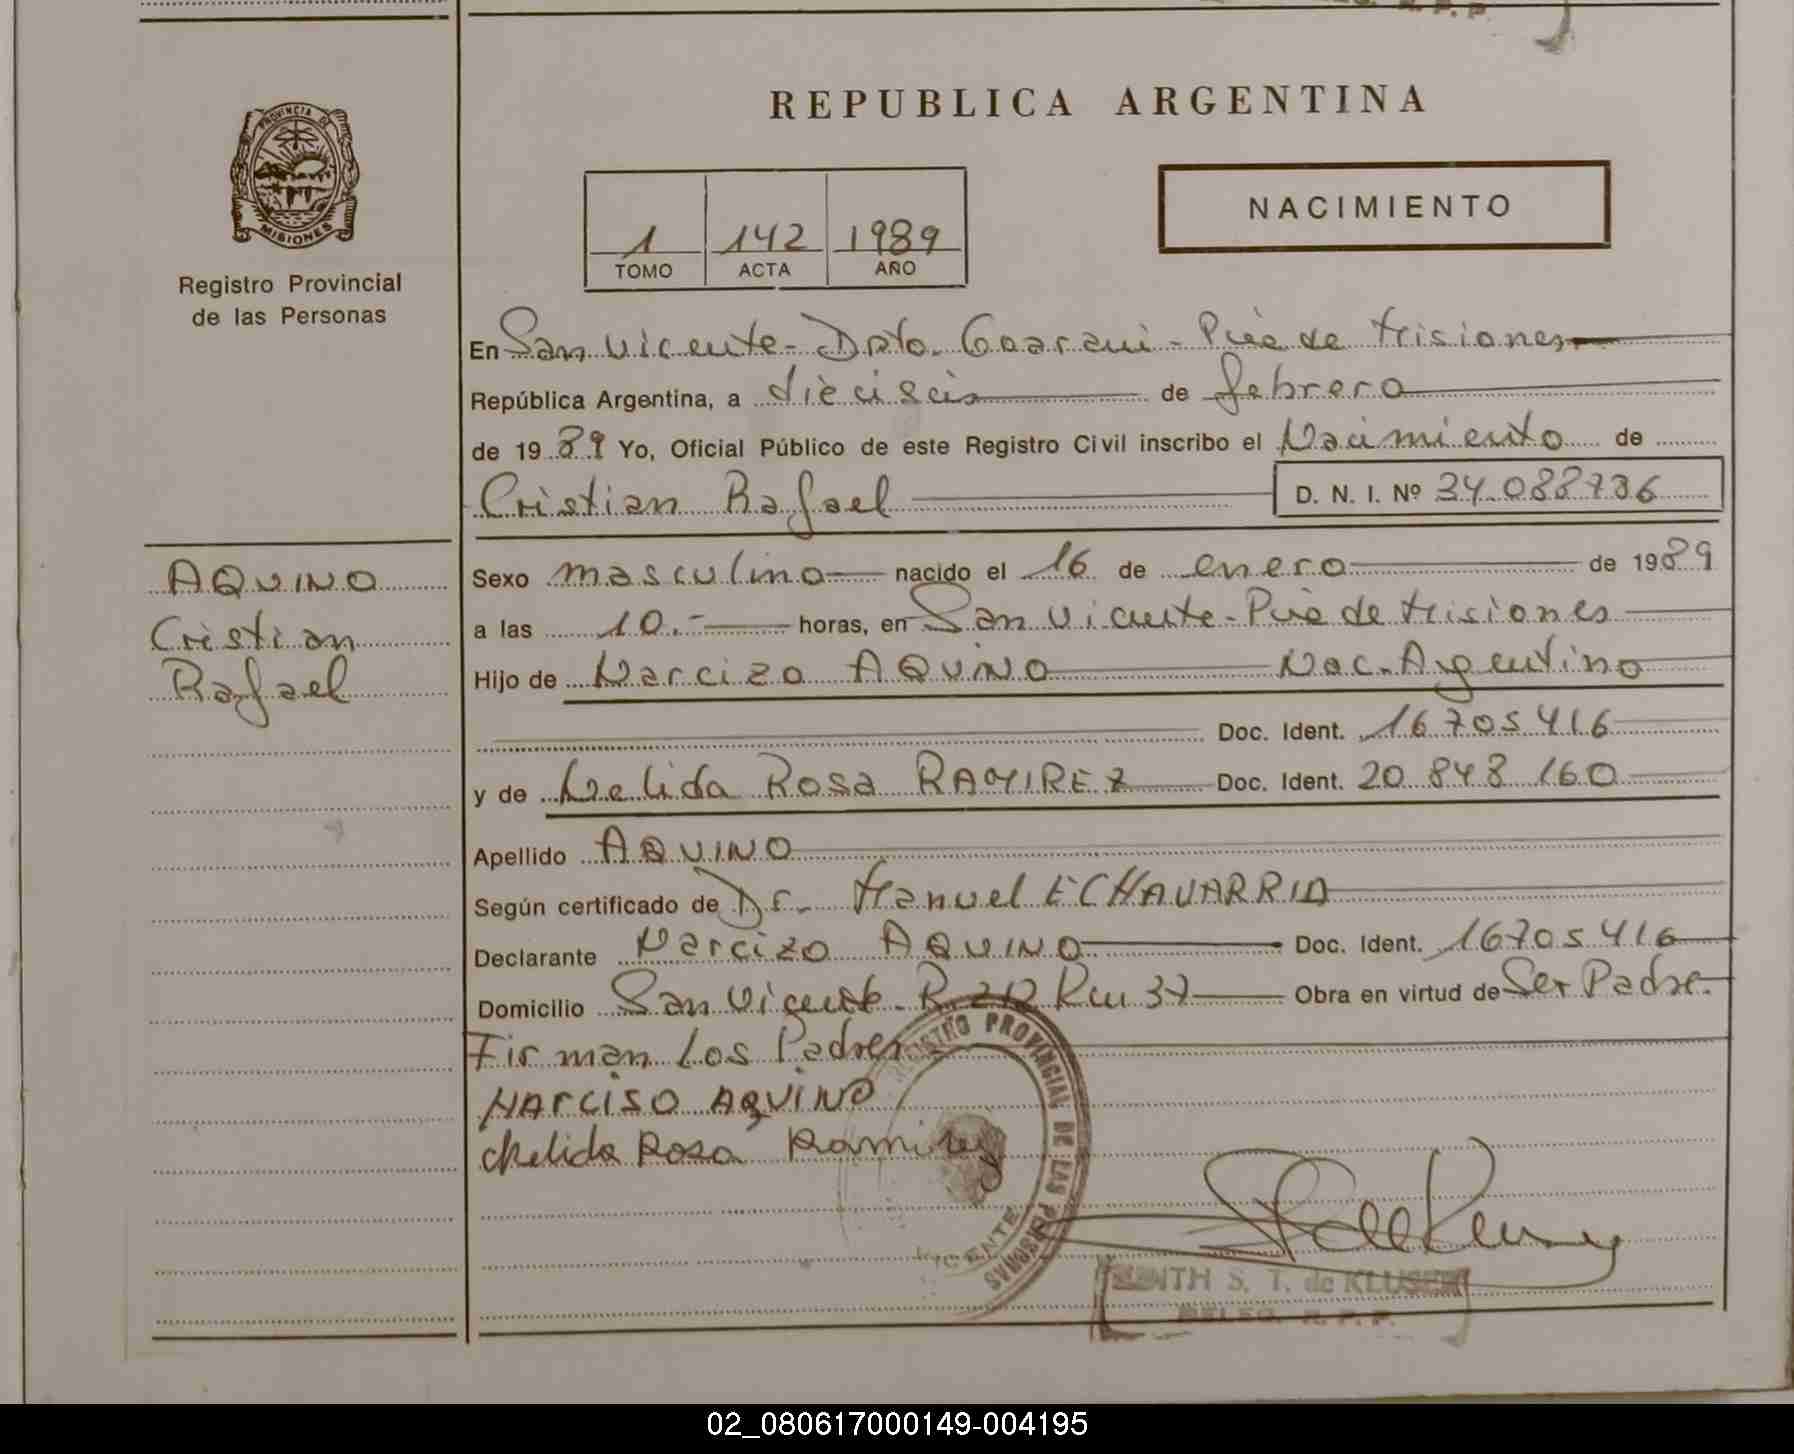 PROVINCIA DE
MISIONES
Registro Provincial
de las Personas
REPUBLICA ARGENTINA
1 142 1989
TOMO ACTA AÑO
NACIMIENTO
En San Vicente - Dpto. Guarani - Pcia de Misiones
República Argentina, a dieciseis de febrero
de 1989 Yo, Oficial Público de este Registro Civil inscribo el Nacimiento de
Cristian Rafael D. N. I. Nº 34.088736
AQUINO
Cristian
Rafael
Sexo masculino nacido el 16 de enero de 1989
a las 10.- horas, en San Vicente - Pcia de Misiones
Hijo de Narcizo AQUINO Nac. Argentino
Doc. Ident. 16705416
y de Nelida Rosa RAMIREZ Doc. Ident. 20 848 160
Apellido AQUINO
Según certificado de Dr. Manuel ECHAVARRIA
Declarante Narcizo AQUINO Doc. Ident. 16705416
Domicilio San Vicente - R. 212 Km 37 Obra en virtud de Ser Padre.
Firman Los Padres
NARCISO AQUINO
Nelida Rosa Ramirez
REGISTRO PROVINCIAL DE LAS PERSONAS
VICENTE
S. T. de KLUSER
DELEG. R. P. P.
02_080617000149-004195